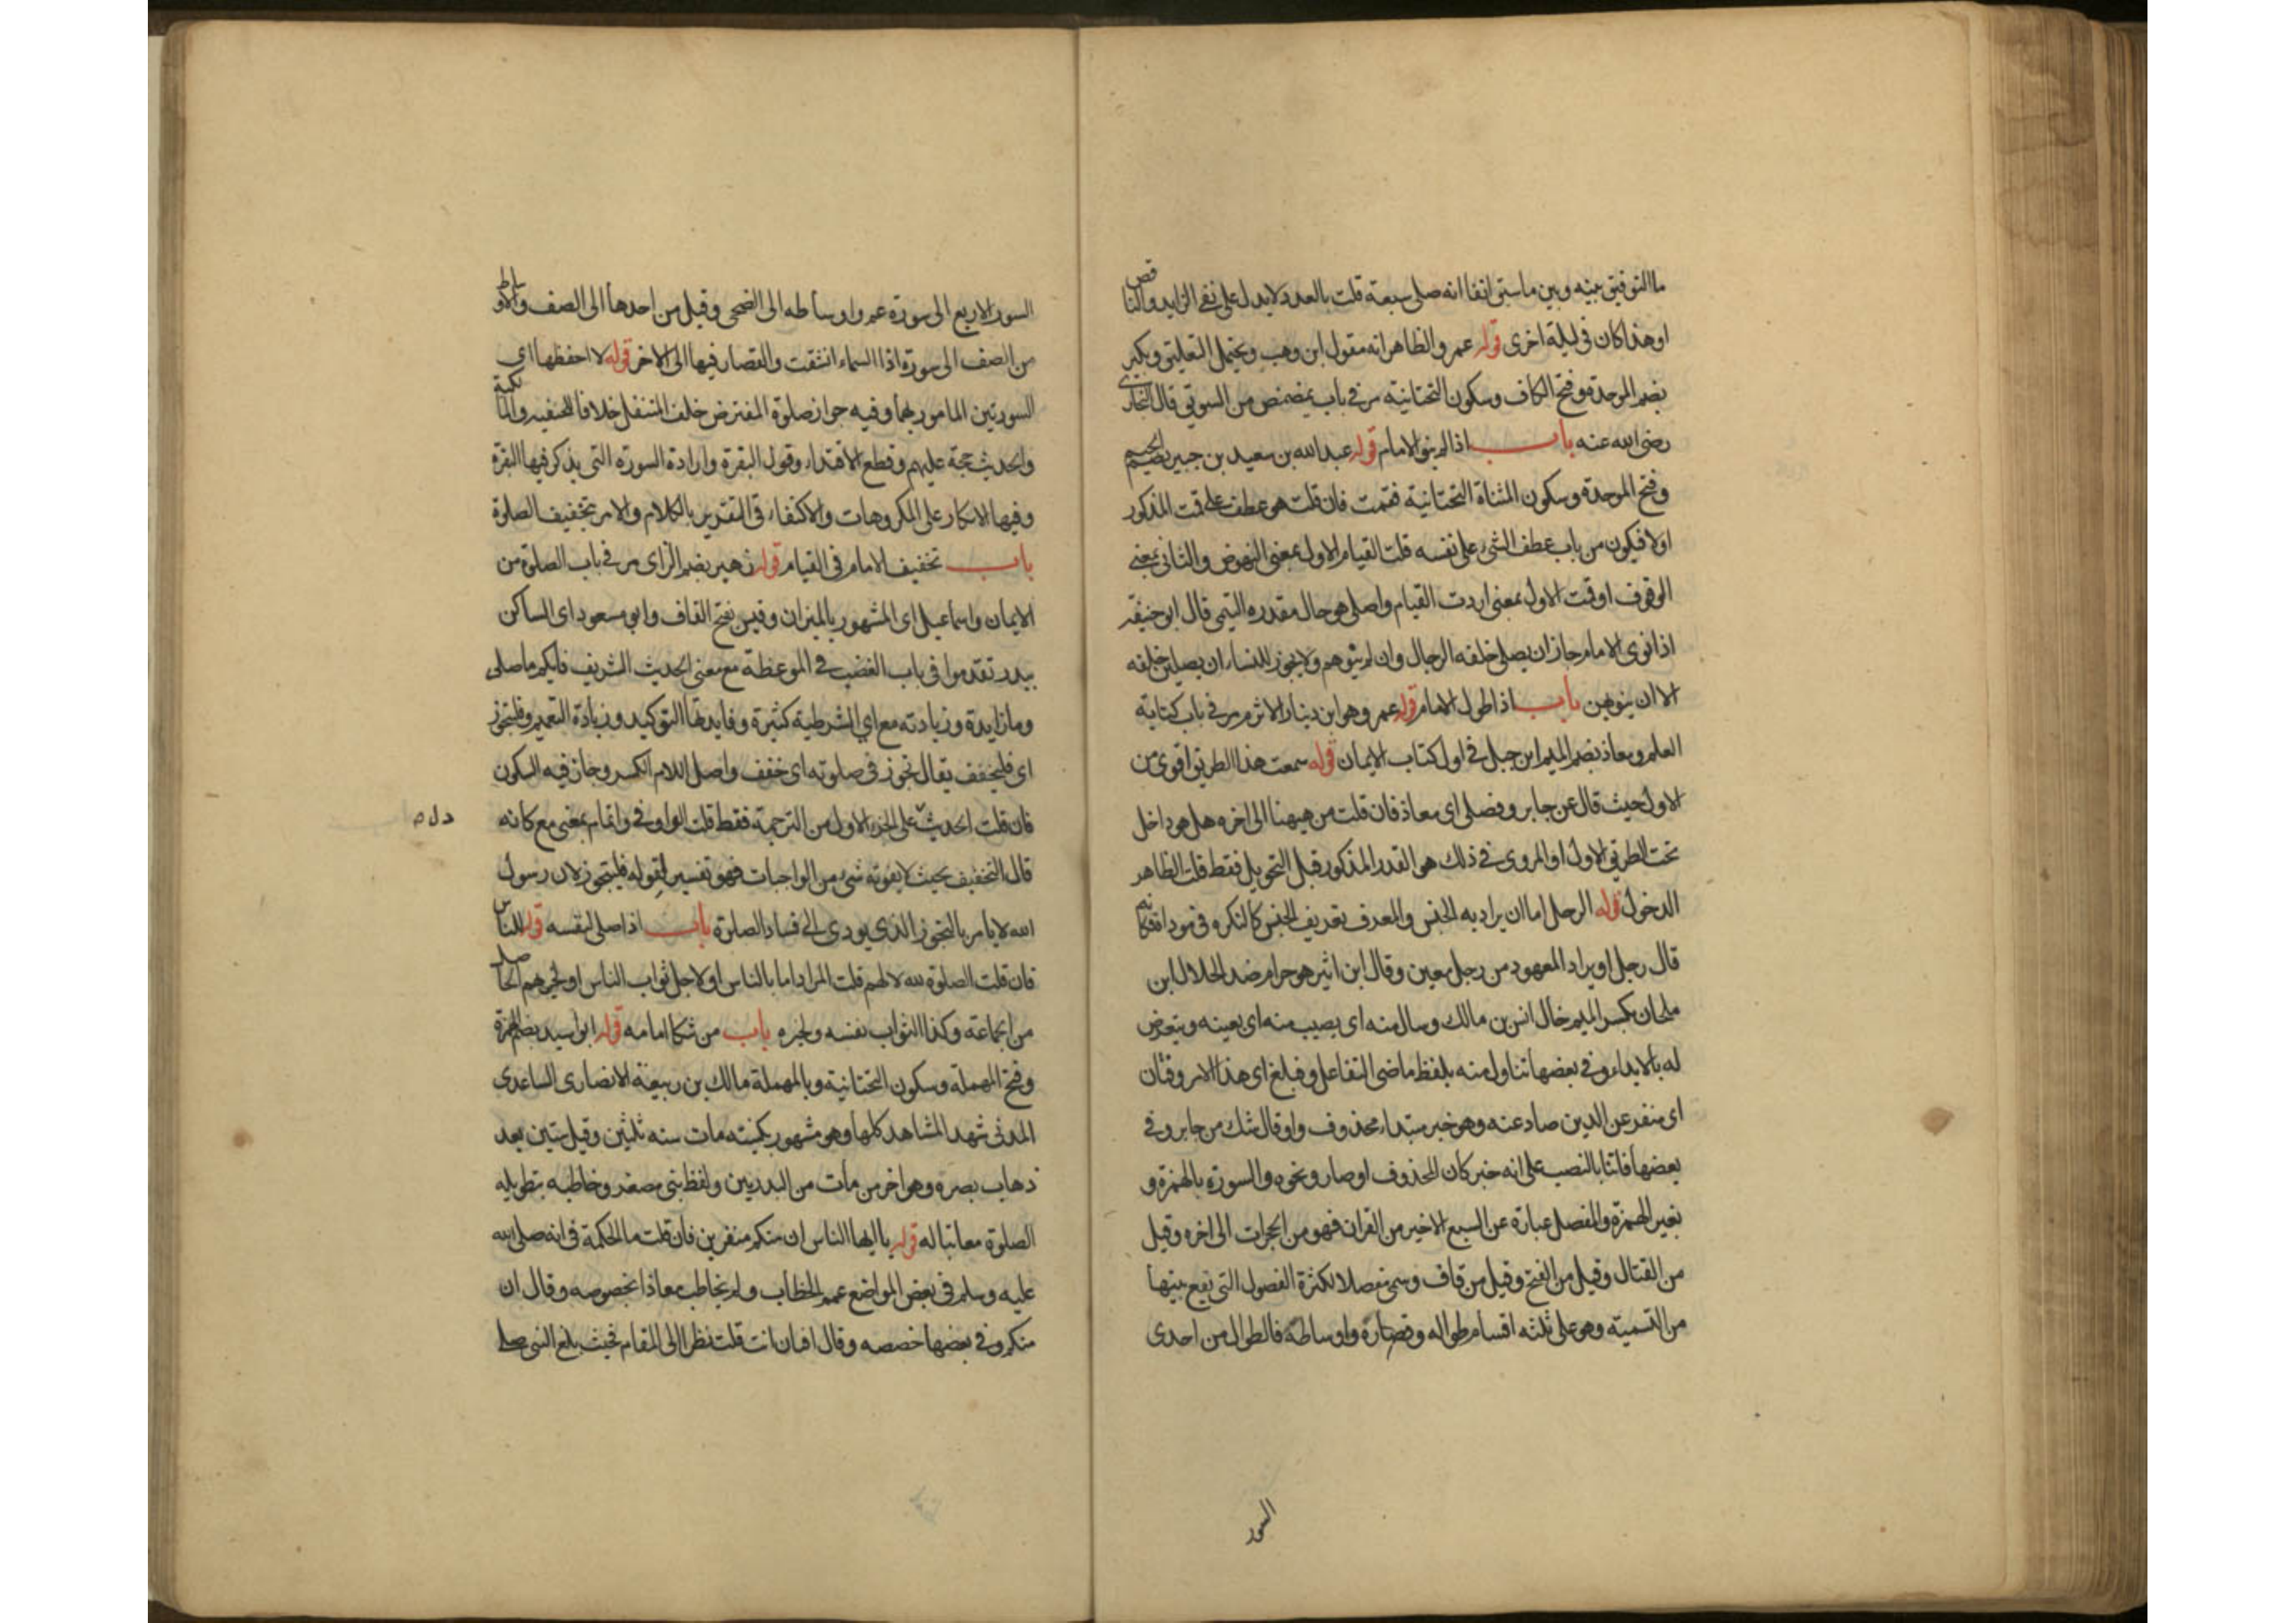 ما التوفيق بينه وبين ما سبق انفا انه صلى سبعة قلت بالعدد لا يدل على نفى الزايد والناقص
او هذا كان فى ليلة اخرى قوله عمرو الظاهر انه مقول ابن وهب ويحتمل التعليق وبكير
بضم الموحدة وفتح الكاف وسكون التحتانية مر فى باب يمضمض من السويق قال البخارى
رضى الله عنه باب اذا لم ينو الامام قوله عبد الله بن سعيد بن جبير بضم الجيم
وفتح الموحدة وسكون المثناة التحتانية فقمت فان قلت هو عطف على قمت المذكور
اولا فيكون من باب عطف الشئ على نفسه قلت القيام الاول بمعنى النهوض والثانى بمعنى
الوقوف او قمت الاول بمعنى اردت القيام واصلى هو حال مقدره التيمى قال ابو حنيفه
اذا نوى الامام جاز ان يصلى خلفه الرجال وان لم ينوهم ولا يجوز للنساء ان يصلين خلفه
الا ان ينويهن باب اذا طول الامام قوله عمرو هو ابن دينار الاثرم مر فى باب كتابة
العلم ومعاذ بضم الميم ابن جبل فى اول كتاب الايمان قوله سمعت هذا الطريق اقوى من
الاول حيث قال عن جابر وفصلى اى معاذ فان قلت من هيهنا الى اخره هل هو داخل
تحت الطريق الاول او المروى فى ذلك هو القدر المذكور قبل التحويل فقط قلت الظاهر
الدخول قوله الرجل اما ان يراد به الجنس والمعرف تعريف الجنس كالنكره فى موداه فكانه
قال رجل او يراد المعهود من رجل معين وقال ابن اثير هو حرام ضد الحلال ابن
ملحان بكسر الميم خال انس بن مالك وسال منه اى يصيب منه اى يعينه ويتعرض
له بالايداء وفى بعضها تناول منه بلفظ ماضى التفاعل وفبلغ اى هذا الامر وفتان
اى منفر عن الدين صاد عنه وهو خبر مبتداء محذوف واو قال شك من جابر وفى
بعضها فاتنا بالنصب على انه خبر كان المحذوف او صار ونحوه والسورة بالهمزة و
بغير الهمزة والمفصل عبارة عن السبع الاخير من القران فهو من الحجرات الى اخره وقيل
من القتال وقيل من الفتح وقيل من قاف وسمى مفصلا لكثرة الفصول التى تقع بينها
من التسمية وهو على ثلثه اقسام طواله وقصاره واوساطه فالطوال من احدى
السور
السور الاربع الى سورة عم واوساطه الى الضحى وقيل من احدها الى الصف والاوساط
من الصف الى سورة اذا السماء انشقت والقصار فيها الى الاخر قوله لا احفظها اى
السورتين المامور بهما وفيه جواز صلوة المفترض خلف المتنفل خلافا للحنفيه والمالكية
والحديث حجة عليهم وقطع الاقتداء وقول البقرة وارادة السورة التى يذكر فيها البقرة
وفيها الانكار على المكروهات والاكتفاء فى التقدير بالكلام والامر بتخفيف الصلوة
باب تخفيف الامام فى القيام قوله زهير بضم الزاى مر فى باب الصلوة من
الايمان واسماعيل اى المشهور بالميزان وقيس بفتح القاف وابو مسعود اى الساكن
ببدر تقدموا فى باب الغضب فى الموعظة مع معنى الحديث الشريف فايكم ما صلى
وما زايدة وزيادته مع اى الشرطية كثيرة وفايدتها التوكيد وزيادة التعميم وفليتجوز
اى فليخفف يقال تجوز فى صلوته اى خفف واصل اللام الكسر وجاز فيه السكون
فان قلت الحديث على الجزء الاول من الترجمة فقط قلت الواو فى واتمام بمعنى مع كانه
دل
قال التخفيف بحيث لا يفوته شئ من الواجبات فهو تفسير لقوله فليتجوز لان رسول
الله لا يامر بالتجوز الذى يودى الى فساد الصلوة باب اذا صلى لنفسه قوله للناس
فان قلت الصلوة لله لا لهم قلت المراد اما بالناس او لاجل ثواب الناس او لخيرهم الحاصل
من الجماعة وكذا الثواب نفسه ولخيره باب من شكا امامه قوله ابو اسيد بضم الهمزة
وفتح المهملة وسكون التحتانية وبالمهملة مالك بن ربيعة الانصارى الساعدى
المدنى شهد المشاهد كلها وهو مشهور بكنيته مات سنه ثلثين وقيل ستين بعد
ذهاب بصره وهو اخر من مات من البدريين ولفظ بنى مصغر وخاطبه بتطويله
الصلوة معاتبا له قوله يا ايها الناس ان منكم منفرين فان قلت ما الحكمة فى انه صلى الله
عليه وسلم فى بعض المواضع عمم الخطاب ولم يخاطب معاذا بخصوصه وقال ان
منكم وفى بعضها خصصه وقال افتان انت قلت نظرا الى المقام فحيث بلغ النبى صلى